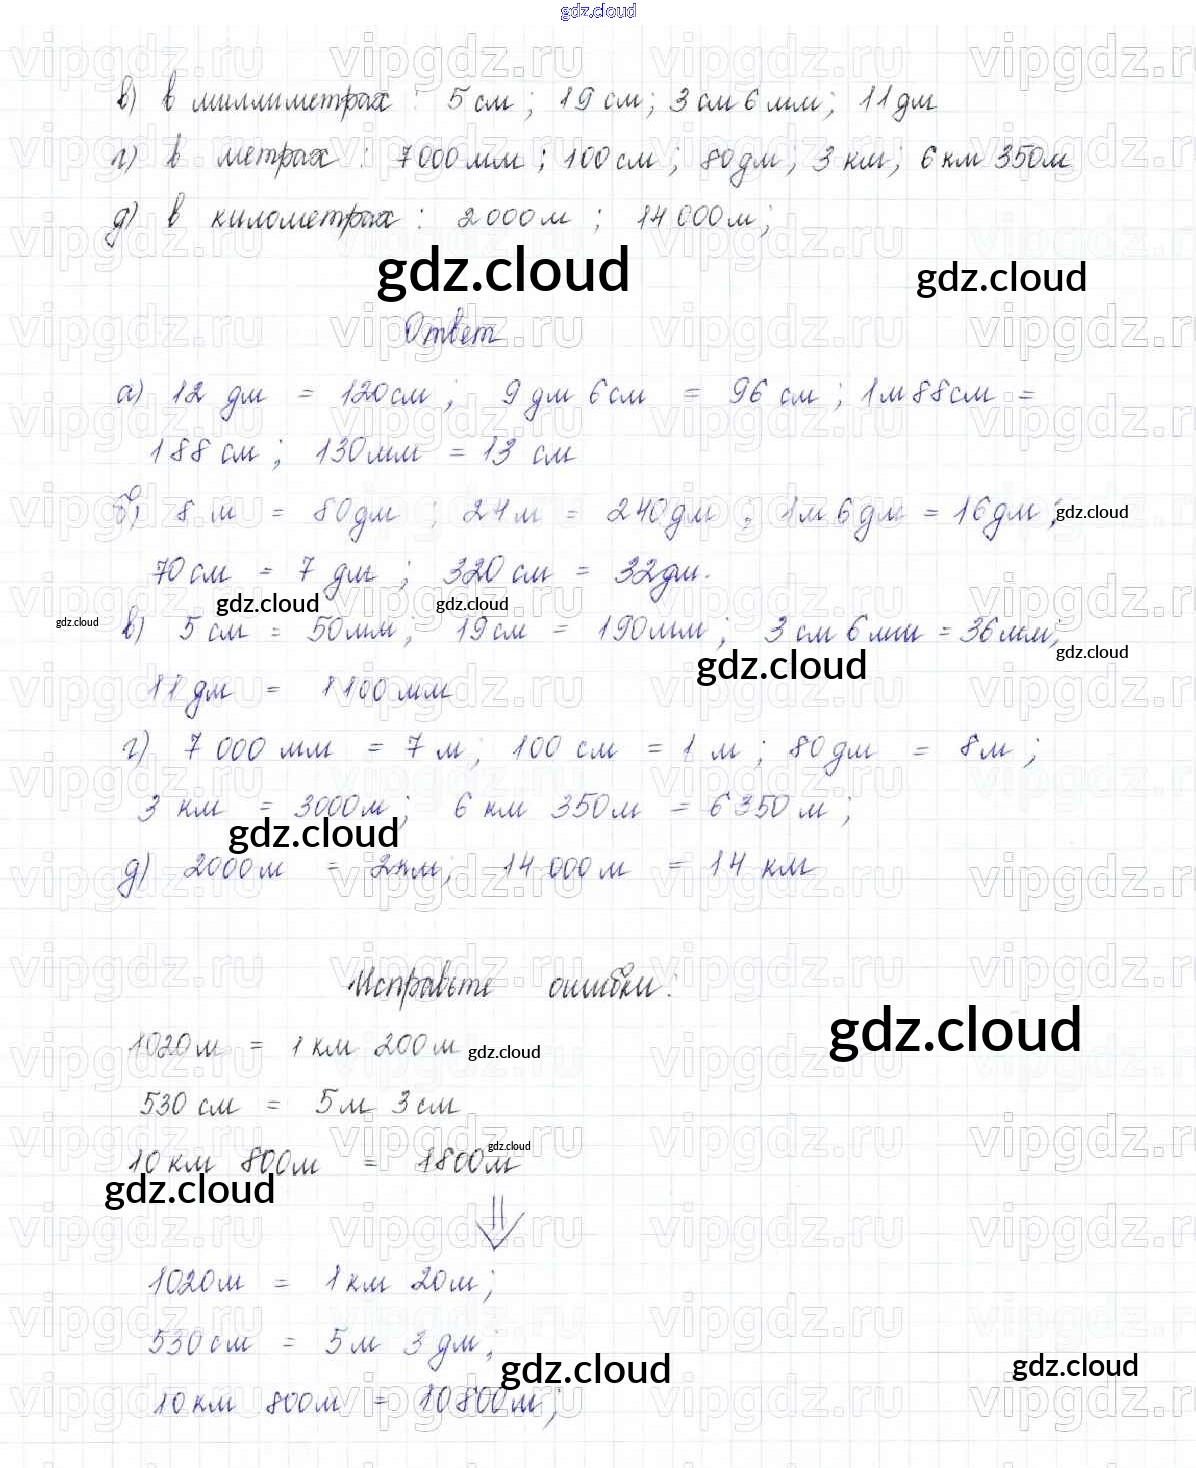 gdz.cloud
в) в миллиметрах : 5 см ; 19 см; 3 см 6 мм; 11 дм
г) в метрах : 7000 мм ; 100 см ; 80 дм ; 3 км; 6 км 350м
д) в километрах : 2000м ; 14 000м;
gdz.cloud gdz.cloud
Ответ
а) 12 дм = 120см ; 9 дм 6 см = 96 см ; 1м 88см =
188 см ; 130мм = 13 см
б) 8 м = 80дм ; 24м = 240дм ; 1м 6дм = 16дм ;
gdz.cloud
70см = 7 дм ; 320 см = 32дм.
gdz.cloud gdz.cloud
gdz.cloud
в) 5 см = 50мм; 19см = 190мм ; 3 см 6 мм = 36мм;
gdz.cloud gdz.cloud
11 дм = 1100мм
г) 7 000 мм = 7 м ; 100 см = 1 м ; 80дм = 8м ;
3 км = 3000м ; 6 км 350м = 6350м ;
gdz.cloud
д) 2000м = 2км; 14 000м = 14 км
Исправьте ошибки:
1020м = 1 км 200м
gdz.cloud gdz.cloud
530 см = 5м 3см
10 км 800м = 1800м
gdz.cloud
gdz.cloud
1020м = 1км 20м;
530см = 5м 3 дм ;
gdz.cloud gdz.cloud
10км 800м = 10800м ;
vipgdz.ru